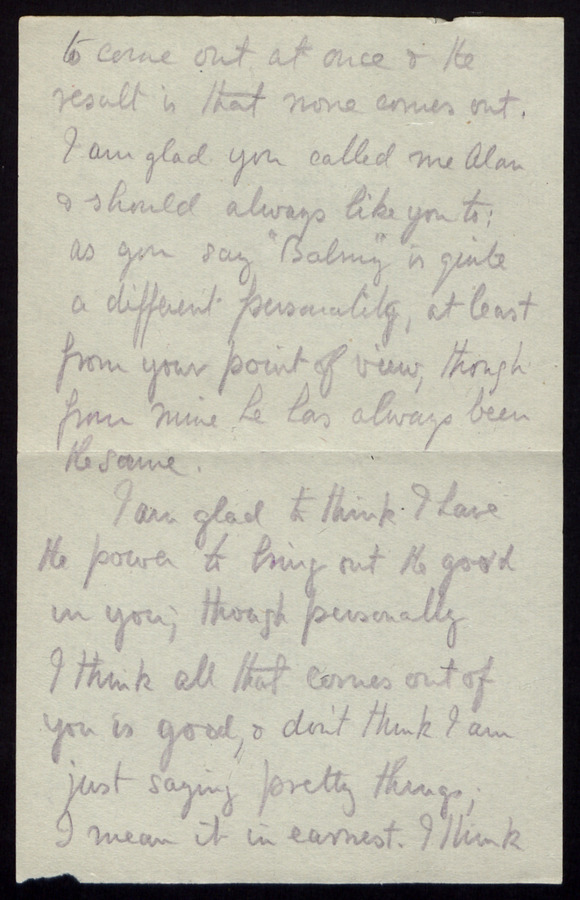 to come out at once & the
result is that none comes out.
I am glad you called me Alan
& should always like you to;
as you say "Balmy" is quite
a different personality, at least
from your point of view, though
from mine he has always been
the same.
I am glad to think I have
the power to bring out the good
in you; though personally
I think all that comes out of
you is good, & don't think I am
just saying pretty things;
I mean it in earnest. I think